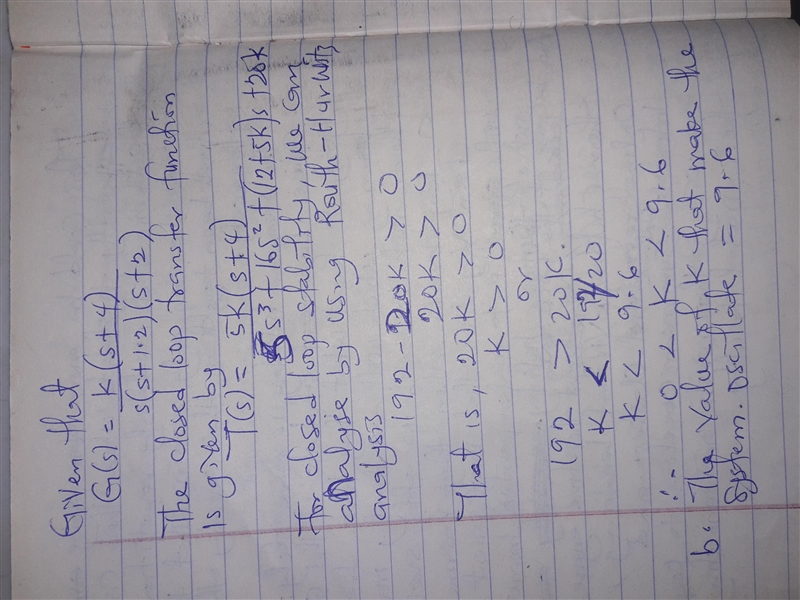 Given that
G(s) = K(s+4) / s(s+1.2)(s+2)
The closed loop transfer function
is given by
T(s) = 5K(s+4) / 5s³ + 16s² + (12+5K)s + 20K
For closed loop stability, we can
analyse by using Routh-Hurwitz
analysis
192 - 20K > 0
20K > 0
That is, 20K > 0
K > 0
or
192 > 20K.
K < 192/20
K < 9.6
∴ 0 < K < 9.6
b. The value of K that make the
System Oscillate = 9.6